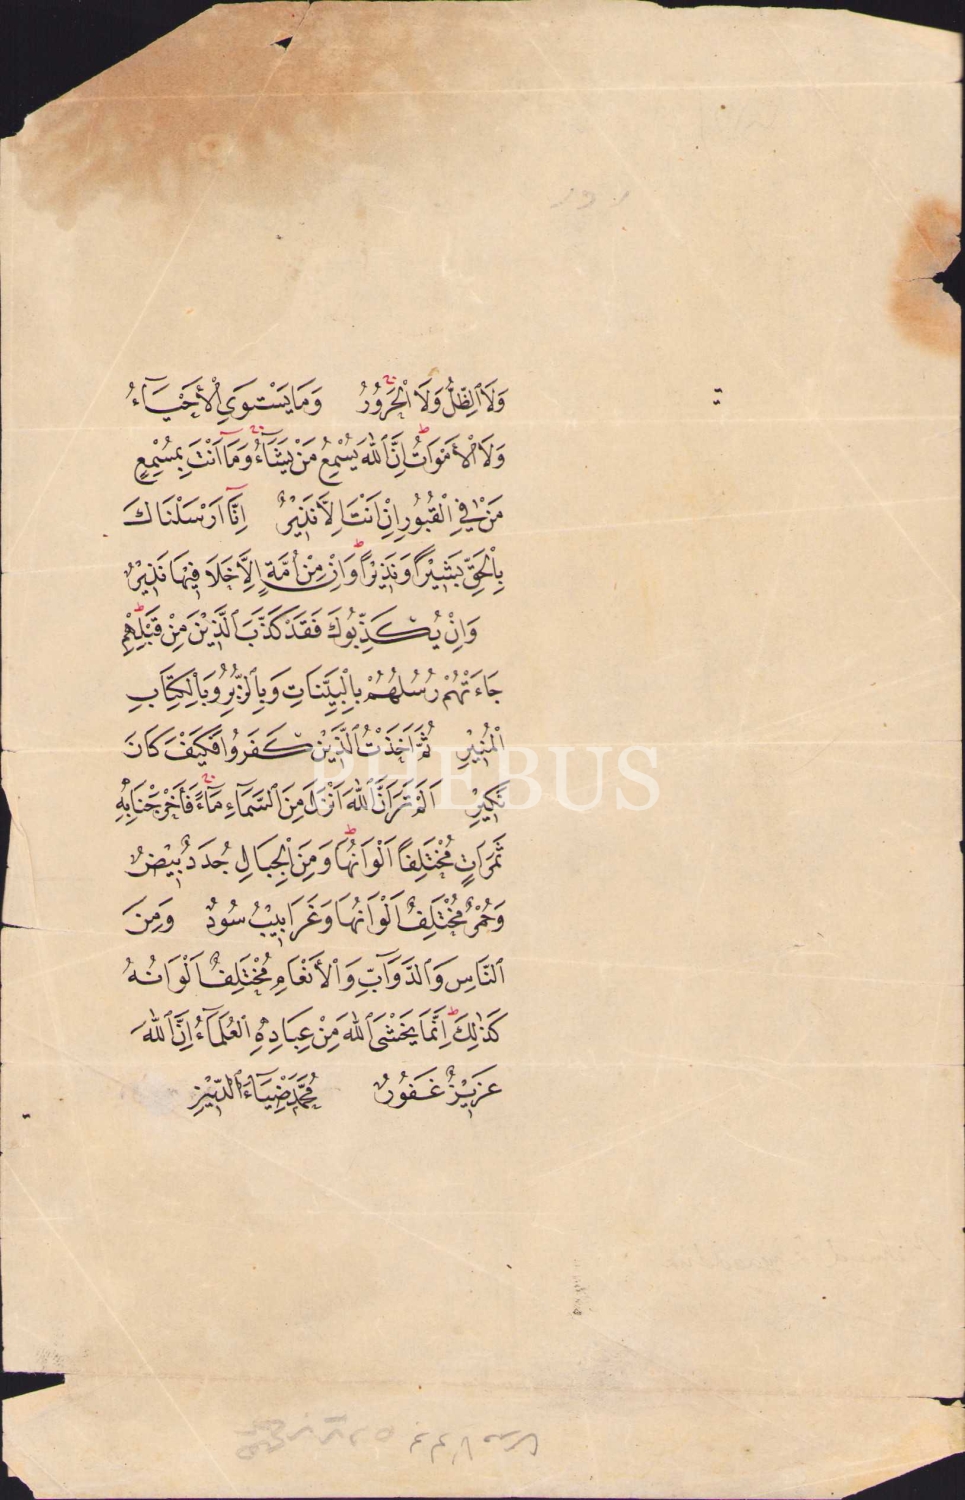 وَلَا الظِّلُّ وَلَا الْحَرُورُ وَمَا يَسْتَوِي الْأَحْيَآءُ
وَلَا الْأَمْوَاتُ اِنَّ اللّٰهَ يُسْمِعُ مَنْ يَشَآءُ وَمَآ اَنْتَ بِمُسْمِعٍ
مَنْ فِي الْقُبُورِ اِنْ اَنْتَ اِلَّا نَذِيرٌ اِنَّآ اَرْسَلْنَاكَ
بِالْحَقِّ بَشِيرًا وَنَذِيرًا وَاِنْ مِنْ اُمَّةٍ اِلَّا خَلَا فِيهَا نَذِيرٌ
وَاِنْ يُكَذِّبُوكَ فَقَدْ كَذَّبَ الَّذِينَ مِنْ قَبْلِهِمْ
جَآءَتْهُمْ رُسُلُهُمْ بِالْبَيِّنَاتِ وَبِالزُّبُرِ وَبِالْكِتَابِ
الْمُنِيرِ ثُمَّ اَخَذْتُ الَّذِينَ كَفَرُوا فَكَيْفَ كَانَ
نَكِيرِ اَلَمْ تَرَ اَنَّ اللّٰهَ اَنْزَلَ مِنَ السَّمَآءِ مَآءً فَاَخْرَجْنَا بِهِ
ثَمَرَاتٍ مُخْتَلِفًا اَلْوَانُهَا وَمِنَ الْجِبَالِ جُدَدٌ بِيضٌ
وَحُمْرٌ مُخْتَلِفٌ اَلْوَانُهَا وَغَرَابِيبُ سُودٌ وَمِنَ
النَّاسِ وَالدَّوَآبِّ وَالْأَنْعَامِ مُخْتَلِفٌ اَلْوَانُهُ
كَذٰلِكَ اِنَّمَا يَخْشَى اللّٰهَ مِنْ عِبَادِهِ الْعُلَمَآءُ اِنَّ اللّٰهَ
عَزِيزٌ غَفُورٌ مُحَمَّد ضِيَآءُ الدِّين
PHEBUS